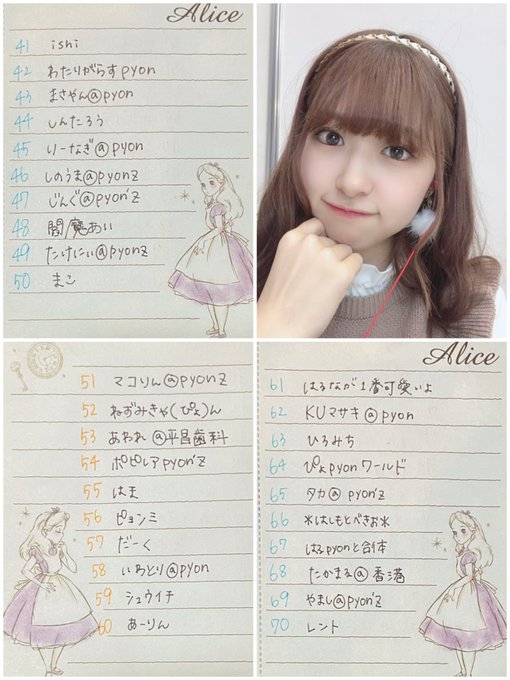 Alice
41 ishi
42 わたりがらすpyon
43 まさやん@pyon
44 しんたろう
45 いーなぎ@pyon
46 しのうま@pyonz
47 じんぐ@pyon'z
48 閻魔あい
49 たけにい@pyonz
50 まこ
51 マコりん@pyonz
52 ねずみきゃ(ぴょ)ん
53 あわれ@平昌歯科
54 ポピレアpyon'z
55 はま
56 ピョンミ
57 だーく
58 いわとり@pyon
59 シュウイチ
60 あーりん
Alice
61 はるなが1番可愛いよ
62 KUマサキ@pyon
63 ひろみち
64 ぴょpyonワールド
65 タカ@pyon'z
66 *はしもとべきお*
67 はるpyonと合体
68 たかまる@香港
69 やまし@pyon'z
70 レント